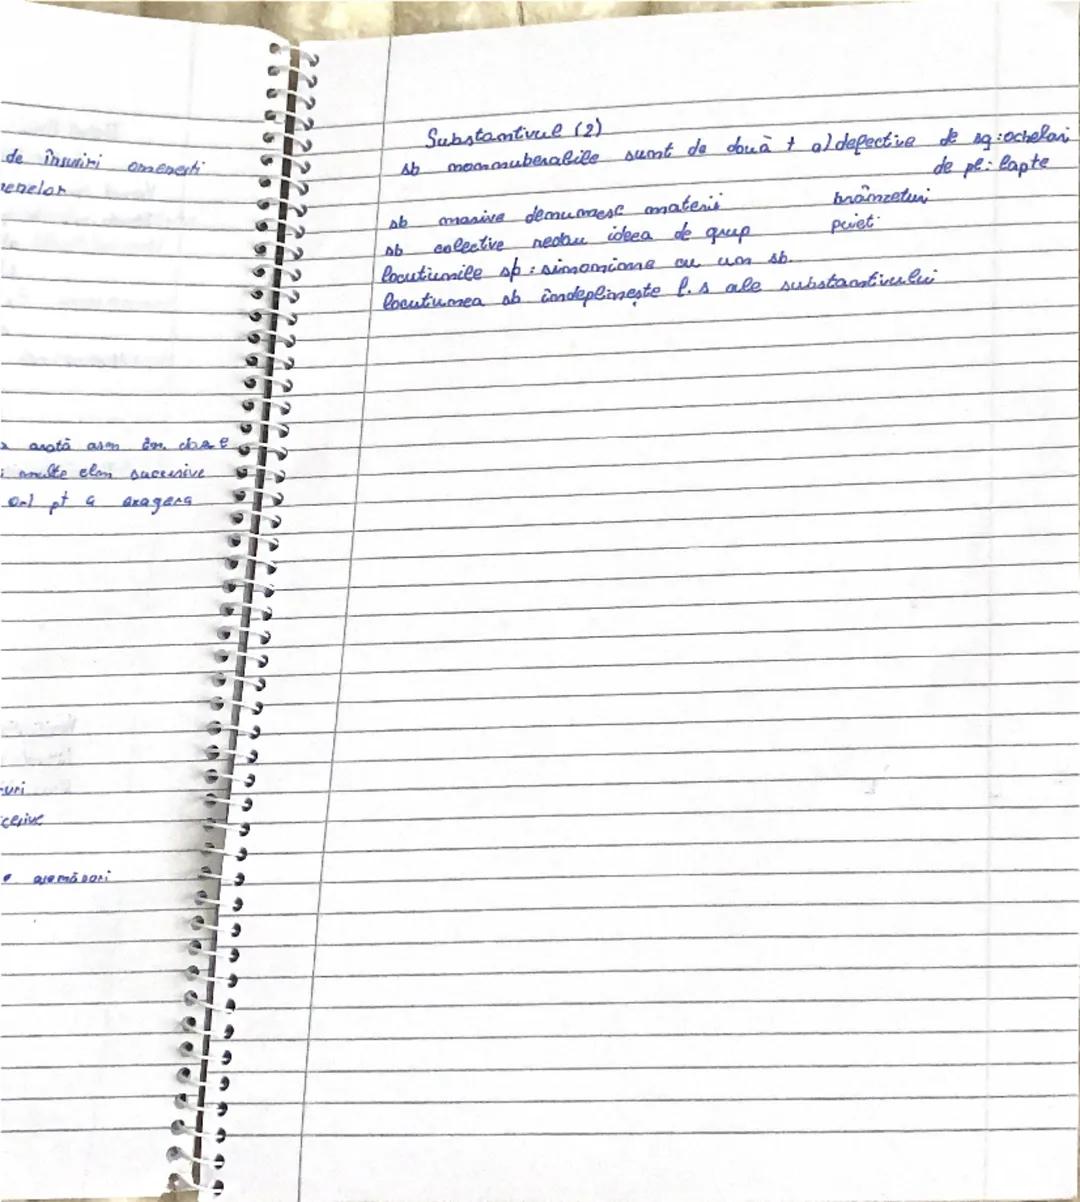 de însuiri omenești
renelor
arată asm în. cbae
multe elem succesive
pt a exagera
uri
cesive
asemănări
Substantivul (2)
sb nonnuberabile sunt de două t a) defective de sg: ochelari
de pl: lapte
sb masive denumesc materii brânzeturi
sb colective redau ideea de grup puiet
locutiunile sb: sinonime cu un sb.
locutiunea sb îndeplinește f.s ale substantivului